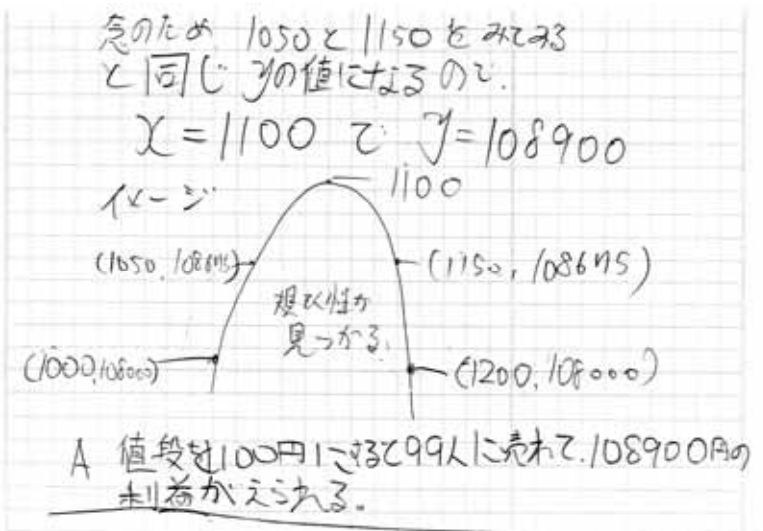 念のため 1050と1150をみてみる
と同じyの値になるので.
x=1100で y=108900
イメージ
1100
(1050, 108675)
(1150, 108675)
見つかる.
(1000,108000)
(1200,108000)
A 値段を1100円にすると99人に売れて.108900円の
利益がえられる。